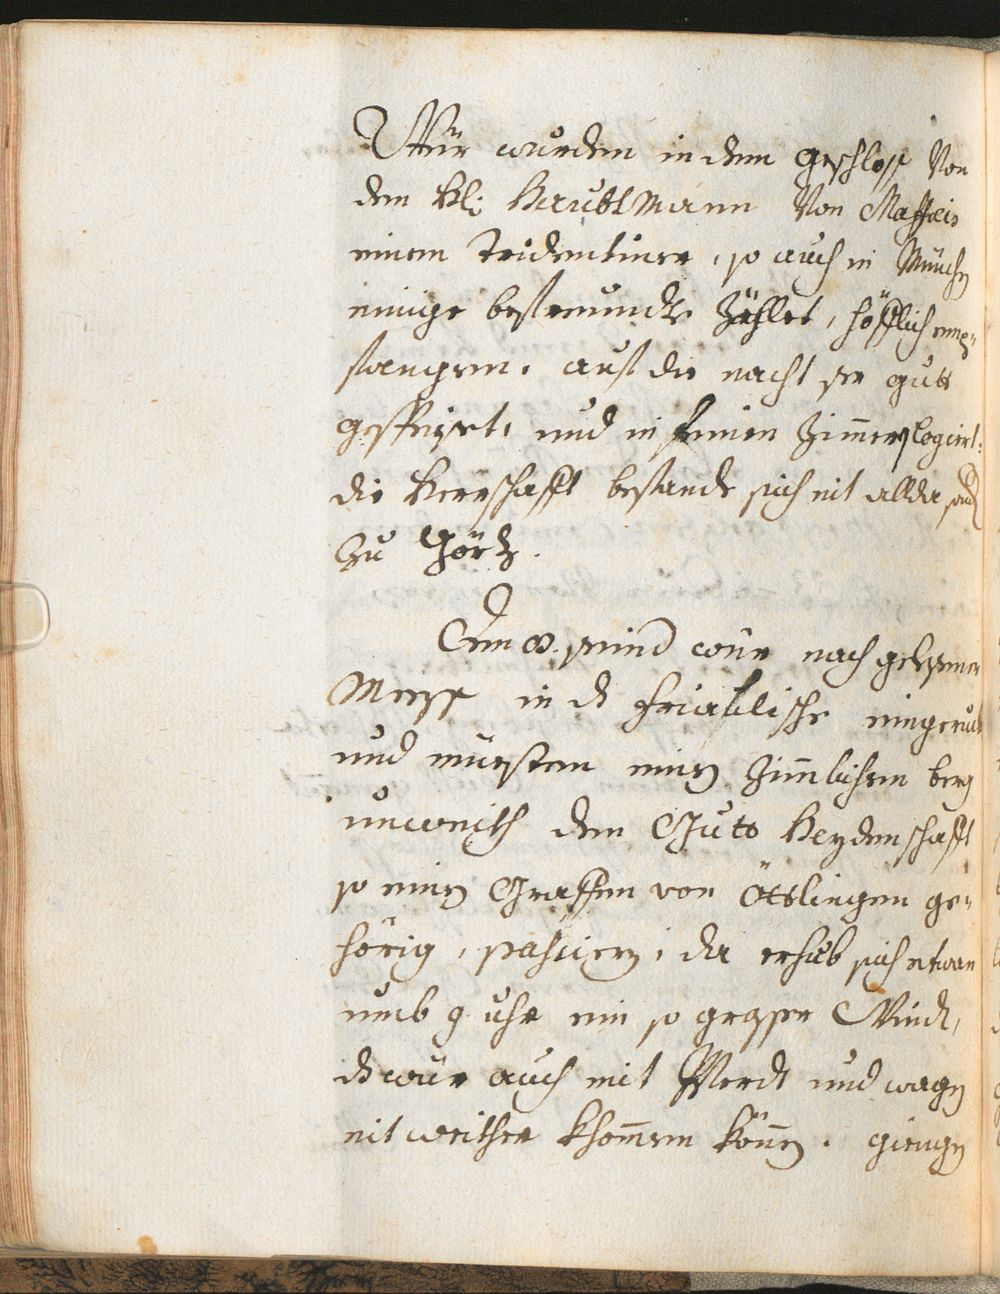 Wür wurden in dem geschloss Von
dem H: Haubtmann Von Maffeis
einem Tridentiner, so auch in Münchn
einige befreundte Zehlet, höfflich emp-
fangen. auf die nacht ser gutt
gespeiset, und in feinen Zimern logiert:
die Herrschafft befande sich nit allda, sond
Zu Görtz.
Den 8. seind wür nach gelesener
Mess in d Friaulische eingeruckt
und muesten einen Zimlichen berg
unweith dem Gutt Heydenschafft
so einem Graffen von Öttlingen ge-
hörig, passiern, da erhub sich etwan
umb 9 uhr ein so grosser Windt,
d wür auch mit Pferdt und wagn
nit weither khomen könen. giengen